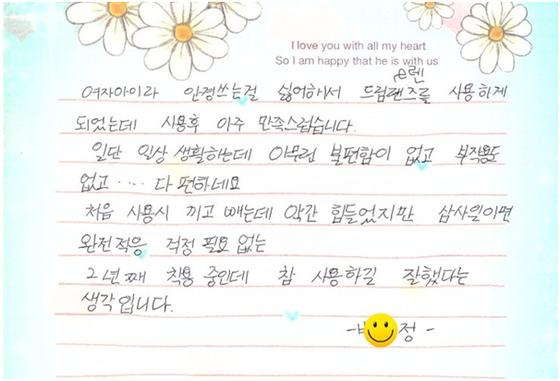 I love you with all my heart
So I am happy that he is with us
여자아이라 안경쓰는걸 싫어해서 드림렌즈를 사용하게
되었는데 사용후 아주 만족스럽습니다.
일단 일상 생활하는데 아무런 불편함이 없고 부작용도
없고 .... 다 편하네요
처음 사용시 끼고 빼는데 약간 힘들었지만 삼사일이면
완전적응 걱정 필요 없는
2년째 착용 중인데 참 사용하길 잘했다는
생각입니다.
- 정 -